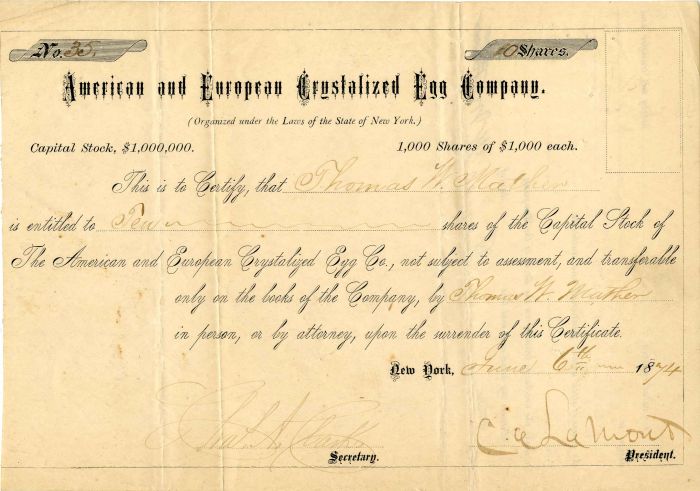 No. 35.
10 Shares.
American and European Crystalized Egg Company.
(Organized under the Laws of the State of New York.)
Capital Stock, $1,000,000.
1,000 Shares of $1,000 each.
This is to Certify, that Thomas W. Mather
is entitled to Ten shares of the Capital Stock of
The American and European Crystalized Egg Co., not subject to assessment, and transferable
only on the books of the Company, by Thomas W. Mather
in person, or by attorney, upon the surrender of this Certificate.
New York, June 6th 1874
C A LaMont
Secretary.
President.